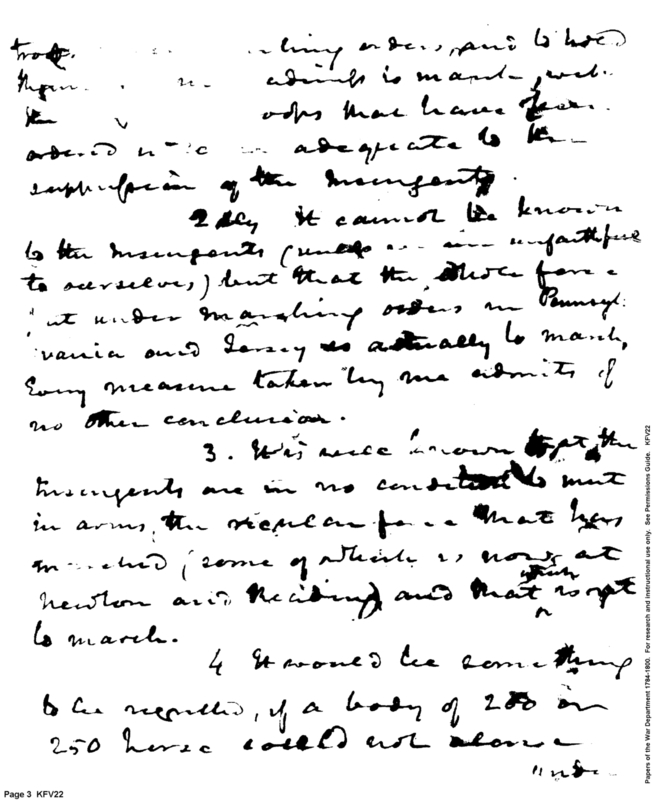 orders, and to hold
is march, with
that have been
ordered adequate to the
suppression of the Insurgents.
2dly It cannot be known
to the Insurgents (unless unfaithful
to ourselves) but that the whole force
under marching orders in Pennsyl
vania and Jersey is actually to march,
Every measure taken by me admits of
no other conclusion.
3. It is well known the
Insurgents are in no condition to meet
in arms, the regular force that has
marched; some of which is now at
Newton and Reading, and that which is yet
to march.
4 It would be something
to be regretted, if a body of 200 or
250 horse could not alone
Page 3 KFV22
Papers of the War Department 1784-1800. For research and instructional use only. See Permissions Guide. KFV22